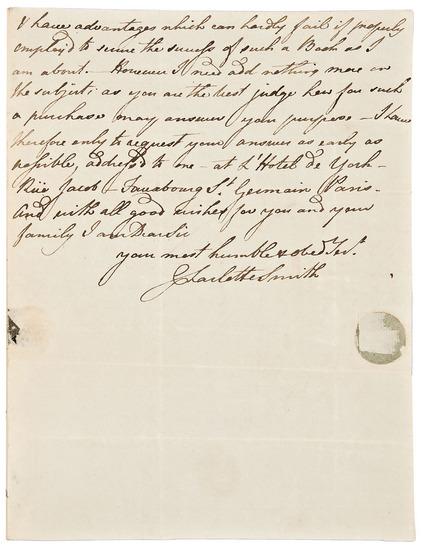 & have advantages which can hardly fail if properly
employ'd to secure the success of such a Book as I
am about. However I need add nothing more on
the subject as you are the best judge how far such
a purchase may answer your purpose – I have
therefore only to request your answer as early as
possible, address'd to me – at L'Hotel de York –
Rüe Jacob – Fauxbourg St. Germain Paris –
And with all good wishes for you and your
family I am Dear Sir
your most humble & obed Sert.
Charlotte Smith